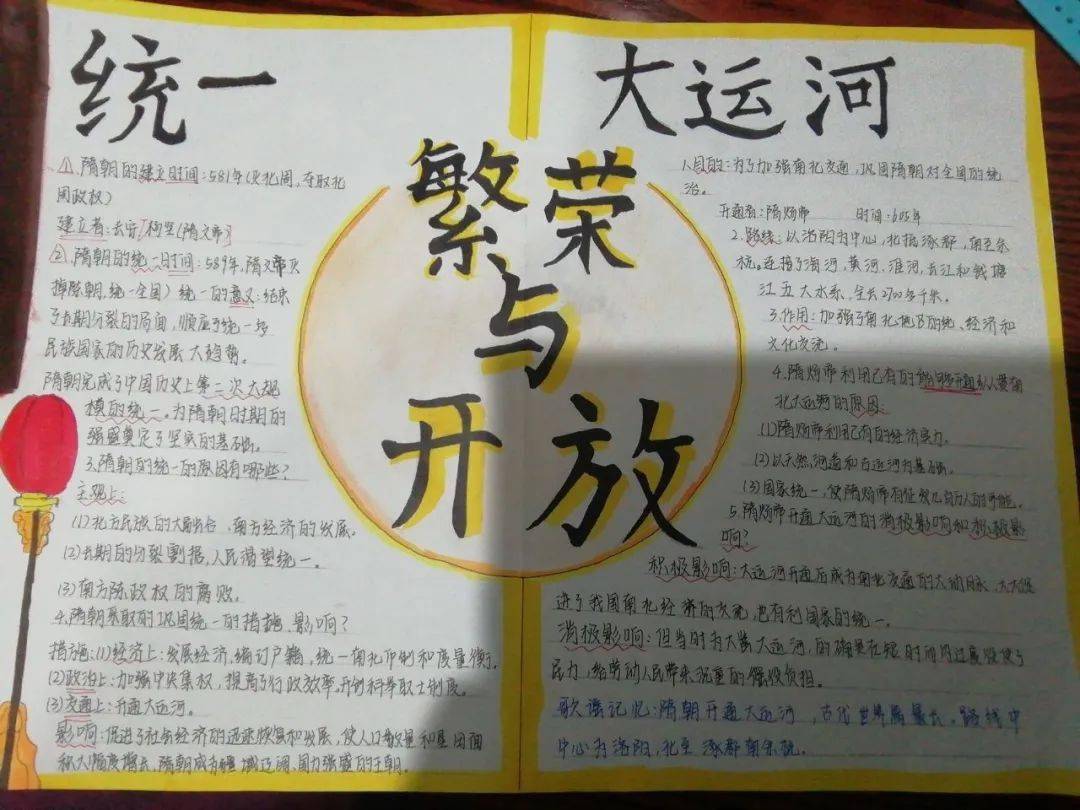 统一
①.隋朝的建立时间:581年(灭北周,夺取北
周政权)
建立者:长安/杨坚(隋文帝)
②.隋朝的统一时间:589年,隋文帝灭
掉陈朝,统一全国)统一的意义:结束
了长期分裂的局面,顺应了统一多
民族国家的历史发展大趋势。
隋朝完成了中国历史上第二次大规
模的统一。为隋朝时期的
强盛奠定了坚实的基础。
3.隋朝的统一的原因有哪些?
主观上:
(1)北方民族的大融合、南方经济的发展。
(2)长期的分裂割据,人民渴望统一。
(3)南方陈政权的腐败。
4.隋朝采取的巩固统一的措施、影响?
措施:(1)经济上:发展经济,编订户籍,统一南北币制和度量衡。
(2)政治上:加强中央集权,提高了行政效率。开创科举取士制度。
(3)交通上:开通大运河。
影响:促进了社会经济的迅速恢复和发展,使人口数量和垦田面
积大幅度增长,隋朝成为疆域辽阔、国力强盛的王朝。
繁荣
与
开放
大运河
1.目的:为了加强南北交通,巩固隋朝对全国的统
治。
开通者:隋炀帝 时间:605年
2.路线:以洛阳为中心,北抵涿郡,南至余
杭。连接了海河、黄河、淮河、长江和钱塘
江五大水系,全长2700多千米。
3.作用:加强了南北地区的统、经济和
文化交流。
4.隋炀帝利用已有的能够开通纵贯南
北大运河的原因:
(1)隋炀帝利用已有的经济实力。
(2)以天然河道和古运河为基础。
(3)国家统一,使隋炀帝有征发几百万人的可能。
5.隋炀帝开通大运河的消极影响和积极影
响?
积极影响:大运河开通后成为南北交通的大动脉,大大促
进了我国南北经济的交流,也有利国家的统一。
消极影响:但当时为大凿大运河,的确是在短时间内过度役使了
民力,给劳动人民带来沉重的徭役负担。
歌谣记忆:隋朝开通大运河,古代世界属最长。路线中
中心为洛阳,北至涿郡南余杭。